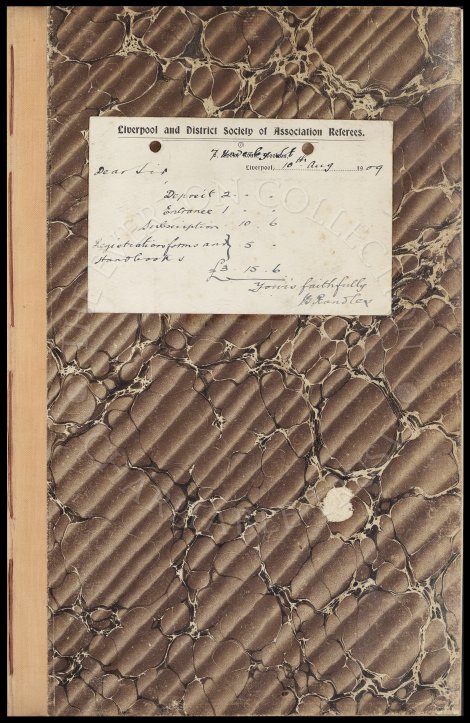 Liverpool and District Society of Association Referees.
7
Liverpool, 10th Aug 1909
Dear Sir
Deposit 2 - -
Entrance 1 - -
Subscription 10 . 6
Registration forms and } 5 -
Handbooks
£3 15 . 6
Yours faithfully